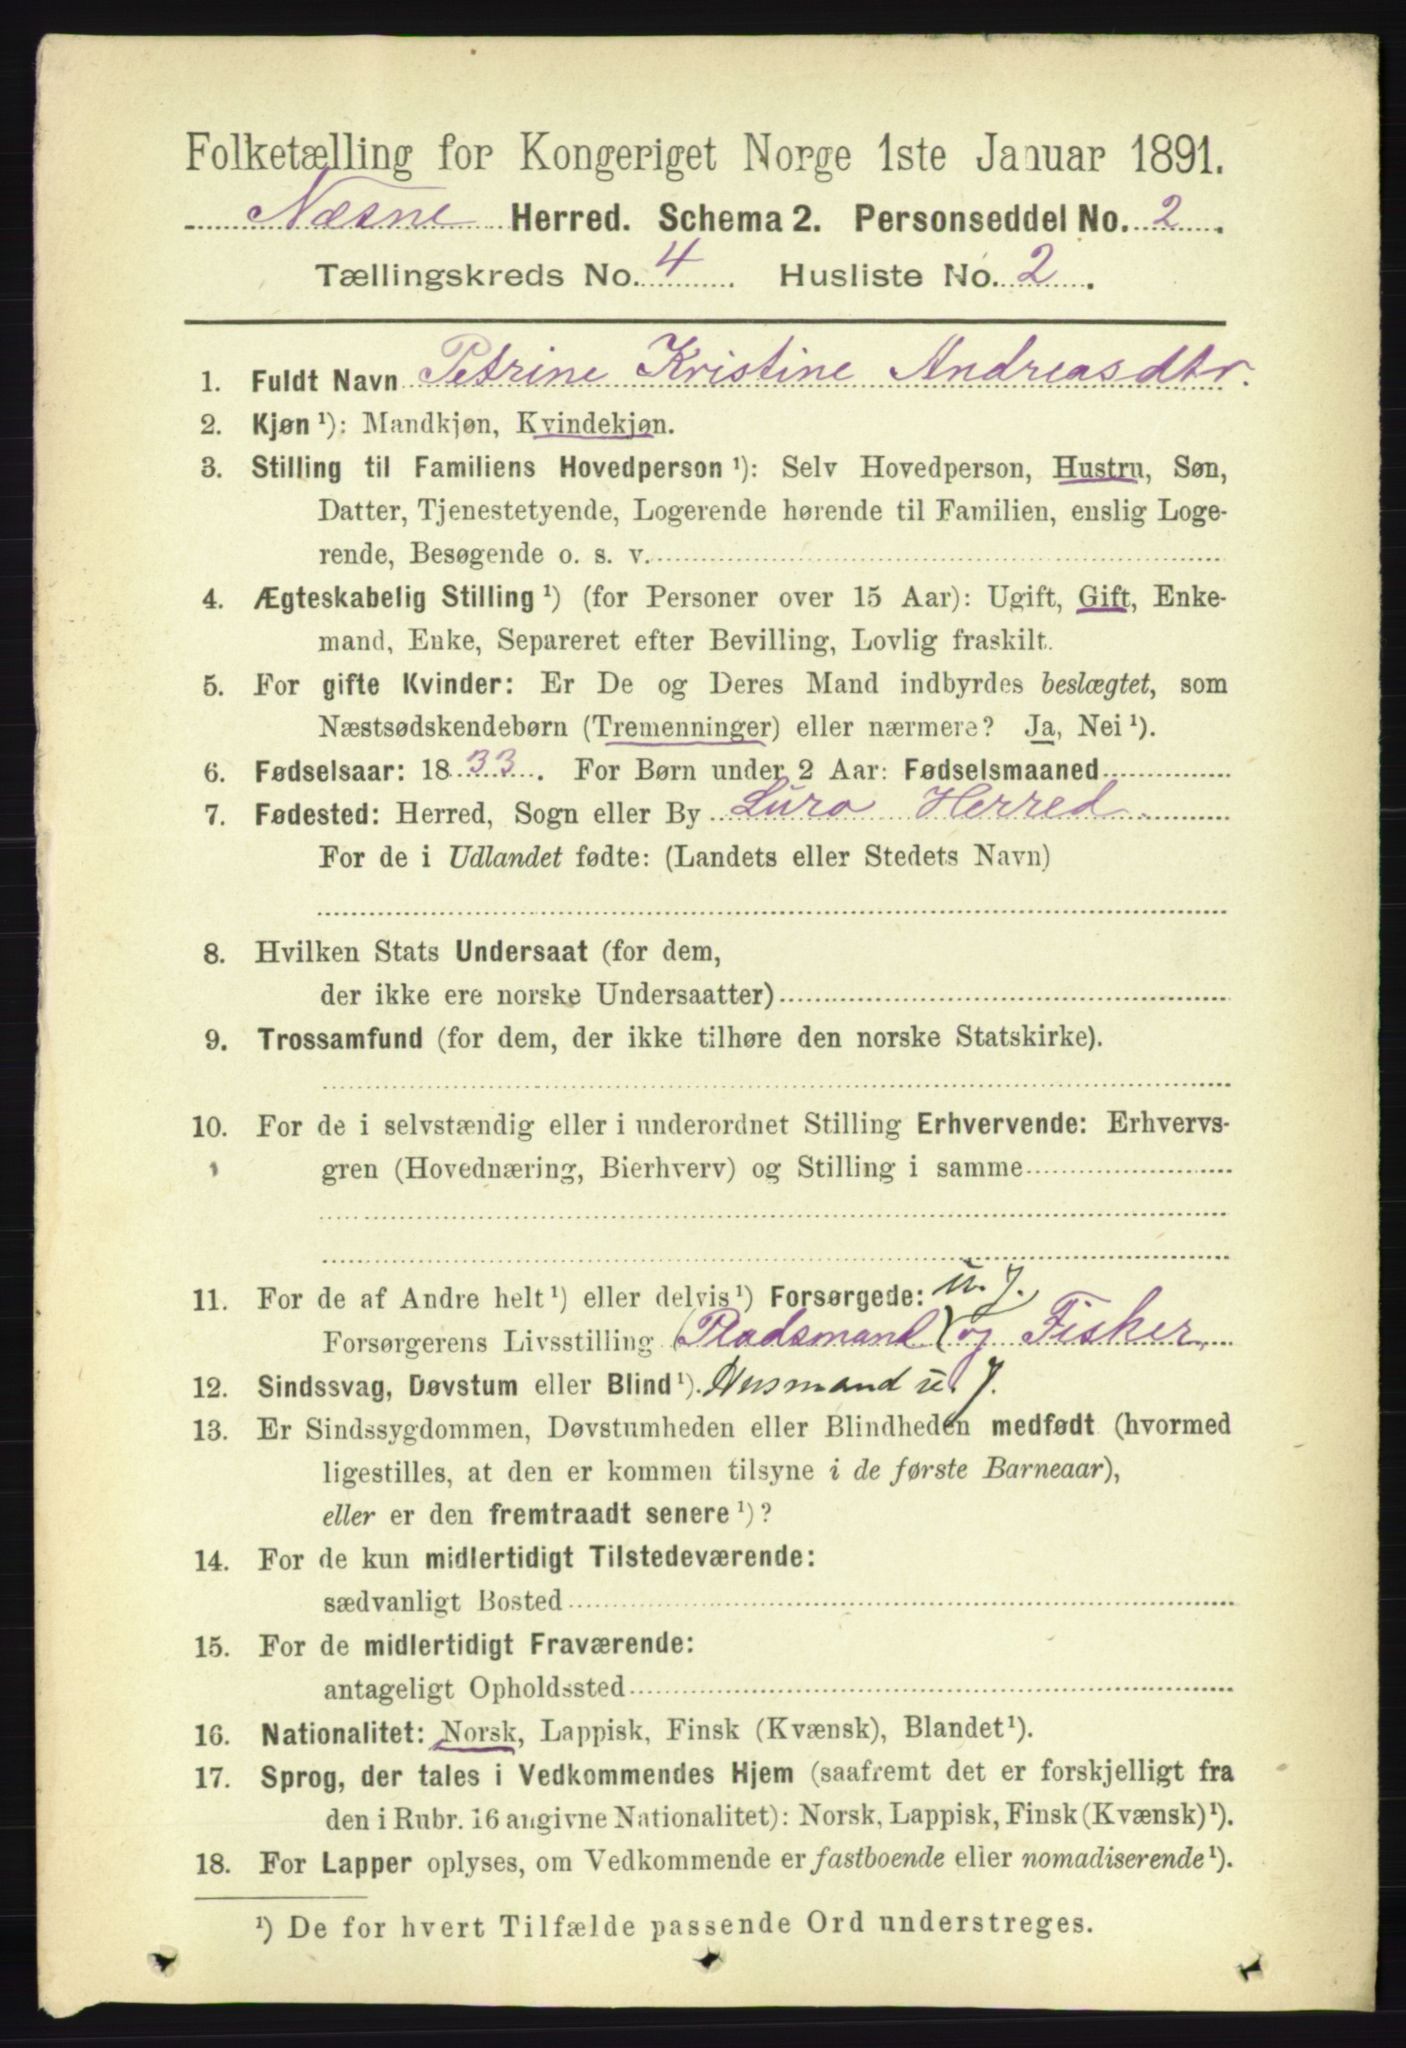 Folketælling for Kongeriget Norge 1ste Januar 1891.
Næsne Herred. Schema 2. Personseddel No. 2.
Tællingskreds No. 4. Husliste No. 2.
1. Fuldt Navn Petrine Kristine Andreasdtr.
2. Kjøn ¹): Mandkjøn, Kvindekjøn.
3. Stilling til Familiens Hovedperson ¹): Selv Hovedperson, Hustru, Søn,
Datter, Tjenestetyende, Logerende hørende til Familien, enslig Loge-
rende, Besøgende o. s. v.
4. Ægteskabelig Stilling ¹) (for Personer over 15 Aar): Ugift, Gift, Enke-
mand, Enke, Separeret efter Bevilling, Lovlig fraskilt.
5. For gifte Kvinder: Er De og Deres Mand indbyrdes beslægtet, som
Næstsødskendebørn (Tremenninger) eller nærmere? Ja, Nei ¹).
6. Fødselsaar: 1833. For Børn under 2 Aar: Fødselsmaaned
7. Fødested: Herred, Sogn eller By Lurø Herred
For de i Udlandet fødte: (Landets eller Stedets Navn)
8. Hvilken Stats Undersaat (for dem,
der ikke ere norske Undersaatter)
9. Trossamfund (for dem, der ikke tilhøre den norske Statskirke).
10. For de i selvstændig eller i underordnet Stilling Erhvervende: Erhvervs-
gren (Hovednæring, Bierhverv) og Stilling i samme
11. For de af Andre helt ¹) eller delvis ¹) Forsørgede: u. J.
Forsørgerens Livsstilling (Pladsmand) og Fisker
12. Sindssvag, Døvstum eller Blind ¹). Husmand u. J.
13. Er Sindssygdommen, Døvstumheden eller Blindheden medfødt (hvormed
ligestilles, at den er kommen tilsyne i de første Barneaar),
eller er den fremtraadt senere ¹)?
14. For de kun midlertidigt Tilstedeværende:
sædvanligt Bosted
15. For de midlertidigt Fraværende:
antageligt Opholdssted
16. Nationalitet: Norsk, Lappisk, Finsk (Kvænsk), Blandet ¹).
17. Sprog, der tales i Vedkommendes Hjem (saafremt det er forskjelligt fra
den i Rubr. 16 angivne Nationalitet): Norsk, Lappisk, Finsk (Kvænsk) ¹).
18. For Lapper oplyses, om Vedkommende er fastboende eller nomadiserende ¹).
¹) De for hvert Tilfælde passende Ord understreges.